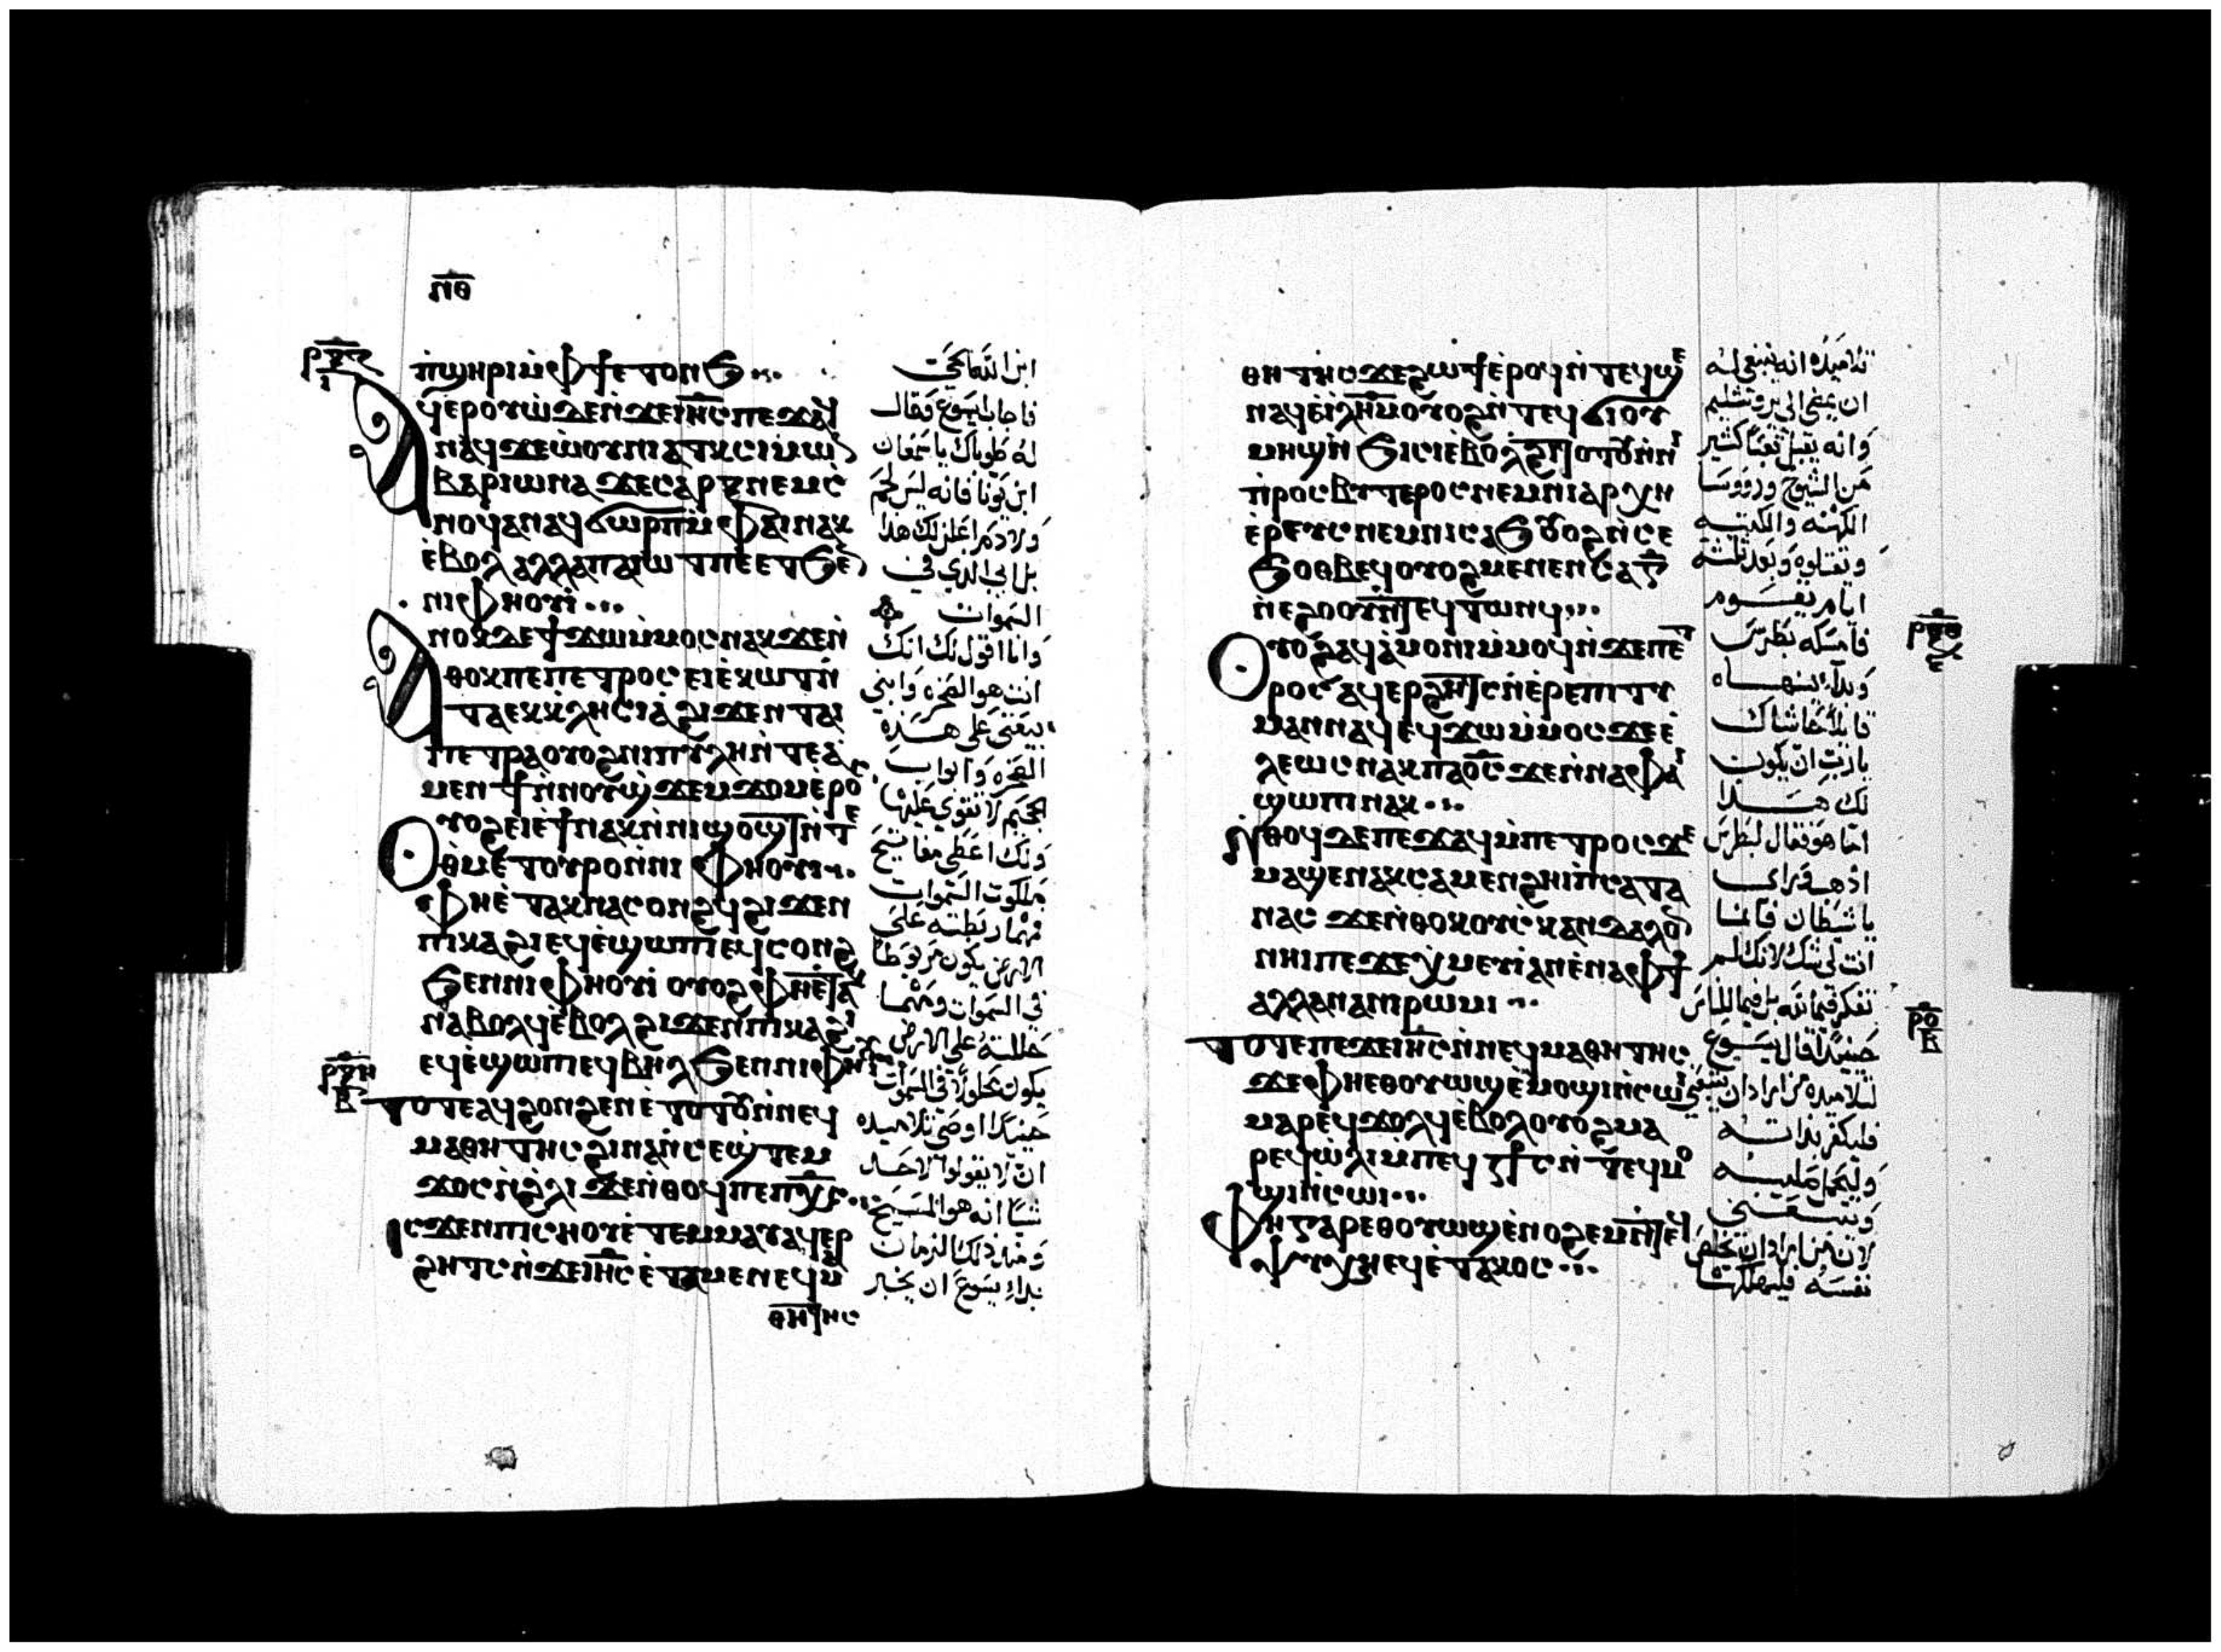 ⲛ̅ⲑ̅
ⲣ̅ⲝ̅ⲍ̅
ⲓ
ⲡ̀ϣⲏⲣⲓ ⲙ̀ⲫϯ ⲉⲧⲟⲛϧ
ⲁϥⲉⲣⲟⲩⲱ̀ ⲇⲉ ⲛ̀ϫⲉ ⲓⲏ̅ⲥ̅ ⲡⲉϫⲁϥ
ⲛⲁϥ ϫⲉ ⲱ̀ⲟⲩⲛⲓⲁⲧⲕ ⲥⲓⲙⲱⲛ
ⲃⲁⲣⲓⲱⲛⲁ ϫⲉ ⲥⲁⲣⲝ ⲛⲉⲙ ⲥ̀
ⲛⲟϥ ⲁⲛ ⲁϥϭⲱⲣⲡ ⲙ̀ⲫⲁⲓ ⲛⲁⲕ
ⲉ̀ⲃⲟⲗ ⲁⲗⲗⲁ ⲡⲁⲓⲱⲧ ⲡⲉ ⲉⲧϧⲉⲛ
ⲛⲓⲫⲏⲟⲩⲓ
ⲁⲛⲟⲕ ⲇⲉ ϯϫⲱ ⲙ̀ⲙⲟⲥ ⲛⲁⲕ ϫⲉ ⲛ̀
ⲑⲟⲕ ⲡⲉ ⲡⲉⲧⲣⲟⲥ ⲉⲓⲉ̀ⲕⲱⲧ ⲛ̀
ⲧⲁⲉⲕⲕⲗⲏⲥⲓⲁ ϩⲓϫⲉⲛ ⲧⲁⲓ
ⲡⲉⲧⲣⲁ ⲟⲩⲟϩ ⲛⲓⲡⲩⲗⲏ ⲛ̀ⲧⲉ ⲁ̀
ⲙⲉⲛϯ ⲛ̀ⲛⲟⲩϣ̀ϫⲉⲙϫⲟⲙ ⲉ̀ⲣⲟⲥ
ⲟⲩⲟϩ ⲉⲓⲉ̀ϯ ⲛⲁⲕ ⲛ̀ⲛⲓϣⲟϣⲧ ⲛ̀ⲧⲉ
ⲑ̀ⲙⲉⲧⲟⲩⲣⲟ ⲛ̀ⲛⲓⲫⲏⲟⲩⲓ
ⲫⲏⲉ̀ⲧⲁⲕⲛⲁⲥⲟⲛϩϥ ϩⲓϫⲉⲛ
ⲡⲓⲕⲁϩⲓ ⲉϥⲉ̀ϣⲱⲡⲓ ⲉϥⲥⲟⲛϩ
ϧⲉⲛ ⲛⲓⲫⲏⲟⲩⲓ ⲟⲩⲟϩ ⲫⲏⲉ̀ⲧⲁⲕ
ⲛⲁⲃⲟⲗϥ ⲉ̀ⲃⲟⲗ ϩⲓϫⲉⲛ ⲡⲓⲕⲁϩⲓ
ⲉϥⲉ̀ϣⲱⲡⲓ ⲉϥⲃⲏⲗ ϧⲉⲛ ⲛⲓⲫⲏⲟⲩⲓ
ⲣ̅ⲝ̅ⲏ̅
ⲃ
ⲧⲟⲧⲉ ⲁϥϩⲟⲛϩⲉⲛ ⲉ̀ⲧⲟⲧⲟⲩ ⲛ̀ⲛⲉϥ
ⲙⲁⲑⲏⲧⲏⲥ ϩⲓⲛⲁ ⲛ̀ⲥⲉϣ̀ⲧⲉⲙ
ϫⲟⲥ ⲛ̀ϩ̀ⲗⲓ ϫⲉ ⲛ̀ⲑⲟϥ ⲡⲉ ⲡⲭ̅ⲥ̅
ⲓⲥϫⲉⲛ ⲡⲓⲥⲏⲟⲩ ⲉ̀ⲧⲉⲙⲙⲁⲩ ⲁϥⲉⲣ
ϩⲏⲧⲥ ⲛ̀ϫⲉ ⲓⲏ̅ⲥ̅ ⲉ̀ⲧⲁⲙⲉ ⲛⲉϥⲙⲁ
ⲑⲏⲧⲏⲥ
ابن الله الحي
فاجاب يسوع وقال
له طوباك يا سمعان
ابن يونا فانه ليس لحم
ولا دم اعلن لك هذا
بل ابي الذي في
السموات
وانا اقول لك انك
انت هو الصخرة وابني
بيعتي على هذه
الصخرة وابواب
الجحيم لا تقوى عليها
ولك اعطي مفاتيح
ملكوت السموات
مهما ربطته على
الارض يكون مربوطا
في السموات ومهما
حللته على الارض
يكون محلولا في السموات
حينيذا اوصى تلاميذه
ان لا يقولوا لاحد
شيا انه هو المسيح
ومنذ ذلك الزمان
بدا يسوع ان يخبر
ⲑⲏⲧⲏⲥ ϫⲉ ϩⲱϯ ⲉ̀ⲣⲟϥ ⲛ̀ⲧⲉϥϣⲉ
ⲛⲁϥ ⲉ̀ⲓ̅ⲗ̅ⲏ̅ⲙ̅ ⲟⲩⲟϩ ⲛ̀ⲧⲉϥϭⲓ ⲟⲩ
ⲙⲏϣ ⲛ̀ϧⲓⲥⲓ ⲉ̀ⲃⲟⲗ ϩⲓⲧⲟⲧⲟⲩ ⲛ̀ⲛⲓ
ⲡ̀ⲣⲉⲥⲃⲩⲧⲉⲣⲟⲥ ⲛⲉⲙ ⲛⲓⲁⲣⲭⲏ
ⲉ̀ⲣⲉⲩⲥ ⲛⲉⲙ ⲛⲓⲥⲁϧ ⲟⲩⲟϩ ⲛ̀ⲥⲉ
ϧⲟⲑⲃⲉϥ ⲟⲩⲟϩ ⲙⲉⲛⲉⲛⲥⲁ ⲅ̅
ⲛ̀ⲉϩⲟⲟⲩ ⲛ̀ⲧⲉϥⲧⲱⲛϥ
ⲣ̅ⲝ̅ⲑ̅
ⲟⲩⲟϩ ⲁϥⲁ̀ⲙⲟⲛⲓ ⲙ̀ⲙⲟϥ ⲛ̀ϫⲉ ⲡⲉⲧ
ⲣⲟⲥ ⲁϥⲉⲣϩⲏⲧⲥ ⲛ̀ⲉ̀ⲣⲉⲡⲓⲧⲩ
ⲙⲁⲛ ⲛⲁϥ ⲉϥϫⲱ ⲙ̀ⲙⲟⲥ ϫⲉ ⲉ̀
ⲗⲉⲱⲥ ⲛⲁⲕ ⲡⲁⲟ̅ⲥ̅ ϫⲉ ⲛ̀ⲛⲁⲫⲁⲓ
ϣⲱⲡⲓ ⲛⲁⲕ
ⲛ̀ⲑⲟϥ ⲇⲉ ⲡⲉϫⲁϥ ⲙ̀ⲡⲉⲧⲣⲟⲥ ϫⲉ
ⲙⲁϣⲉⲛⲁⲕ ⲥⲁⲙⲉⲛϩⲏⲓ ⲡ̀ⲥⲁⲧⲁ
ⲛⲁⲥ ϫⲉ ⲛ̀ⲑⲟⲕ ⲟⲩⲥ̀ⲕⲁⲛⲇⲁⲗⲟⲛ
ⲛⲏⲓ ⲡⲉ ϫⲉ ⲭ̀ⲙⲉⲩⲓ ⲁⲛ ⲉ̀ⲛⲁⲫϯ
ⲁⲗⲗⲁ ⲛⲁⲛⲓⲣⲱⲙⲓ
ⲣ̅ⲟ̅
ⲃ
ⲧⲟⲧⲉ ⲡⲉϫⲉ ⲓⲏ̅ⲥ̅ ⲛ̀ⲛⲉϥⲙⲁⲑⲏⲧⲏⲥ
ϫⲉ ⲫⲏⲉⲑⲟⲩⲱϣ ⲉ̀ⲙⲟϣⲓ ⲛ̀ⲥⲱⲓ
ⲙⲁⲣⲉϥϫⲟⲗϥ ⲉ̀ⲃⲟⲗ ⲟⲩⲟϩ ⲙⲁ
ⲣⲉϥⲱ̀ⲗⲓ ⲙ̀ⲡⲉϥⲥϯⲥ ⲛ̀ⲧⲉϥⲙⲟ
ϣⲓ ⲛ̀ⲥⲱⲓ
ⲫⲏ ⲅⲁⲣ ⲉⲑⲟⲩⲱϣ ⲉ̀ⲛⲟϩⲉⲙ ⲛ̀ⲧⲉϥ
ⲯⲩⲭⲏ ⲉϥⲉ̀ⲧⲁⲕⲟⲥ
تلاميذه انه ينبغي له
ان يمضي الى يروشليم
وانه يقبل تعبا كثير
من الشيوخ وروسا
الكهنه والكتبه
ويقتلوه وبعد ثلثة
ايام يقوم
فامسكه بطرس
وبدا ينهاه
قايلا حاشاك
يارب ان يكون
لك هذا
اما هو فقال لبطرس
اذهب ورايي
يا شيطان فانما
انت لي شك لانك لم
تفكر فيما لله بل فيما للناس
حينيذا قال يسوع
لتلاميذه من اراد ان يتبعني
فليكفر بذاته
وليحمل صليبه
ويتبعني
لان من اراد ان يخلص
نفسه فليهلكها